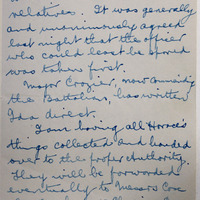 relatives. It was generally
and unanimously agreed
last night that the officer
who could least be spared
was taken first.
Major Crozier, now commanding
the Battalion, has written
Ida direct.
I am having all Horace's
things collected and handed
over to the proper Authority.
They will be forwarded
eventually to Messrs Cox